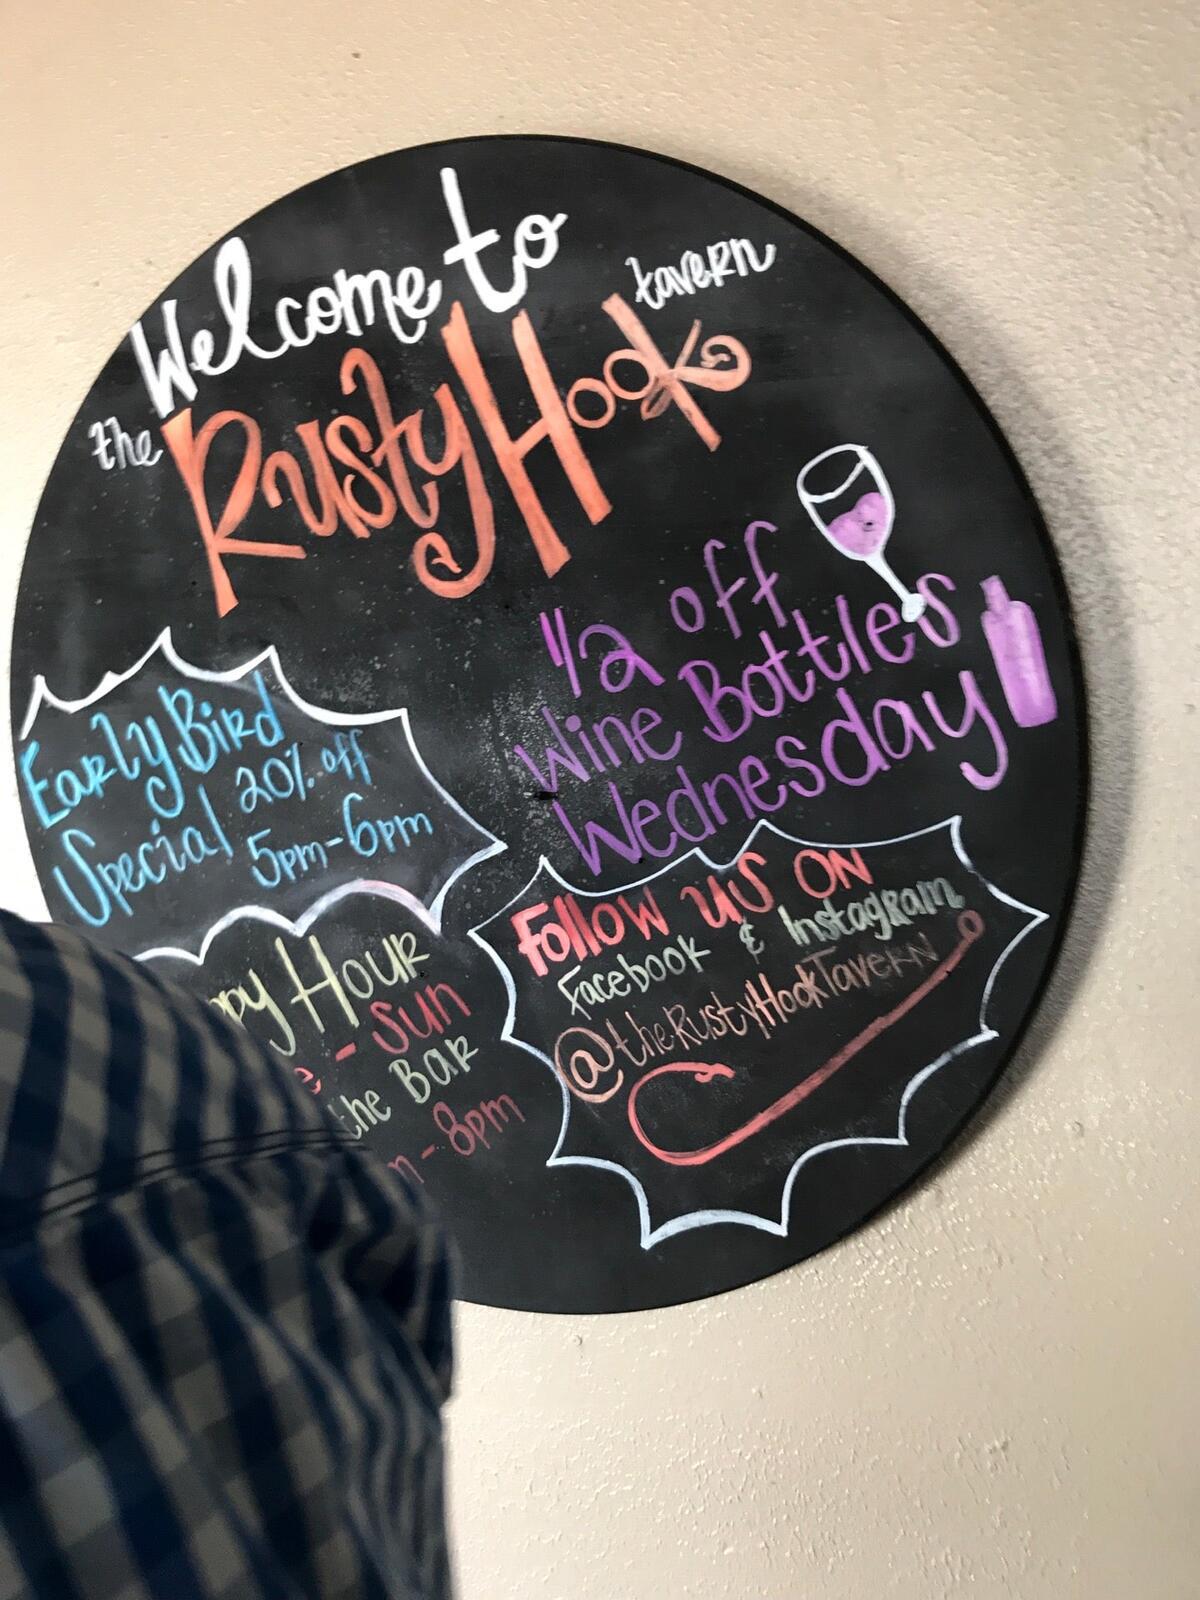 Welcome to
the Rusty Hook tavern
1/2 off
Wine Bottles
Wednesday
Early Bird
Special 20% off
5pm-6pm
Hour
- Sun
the Bar
- 8pm
Follow us on
Facebook & Instagram
@theRustyHookTavern